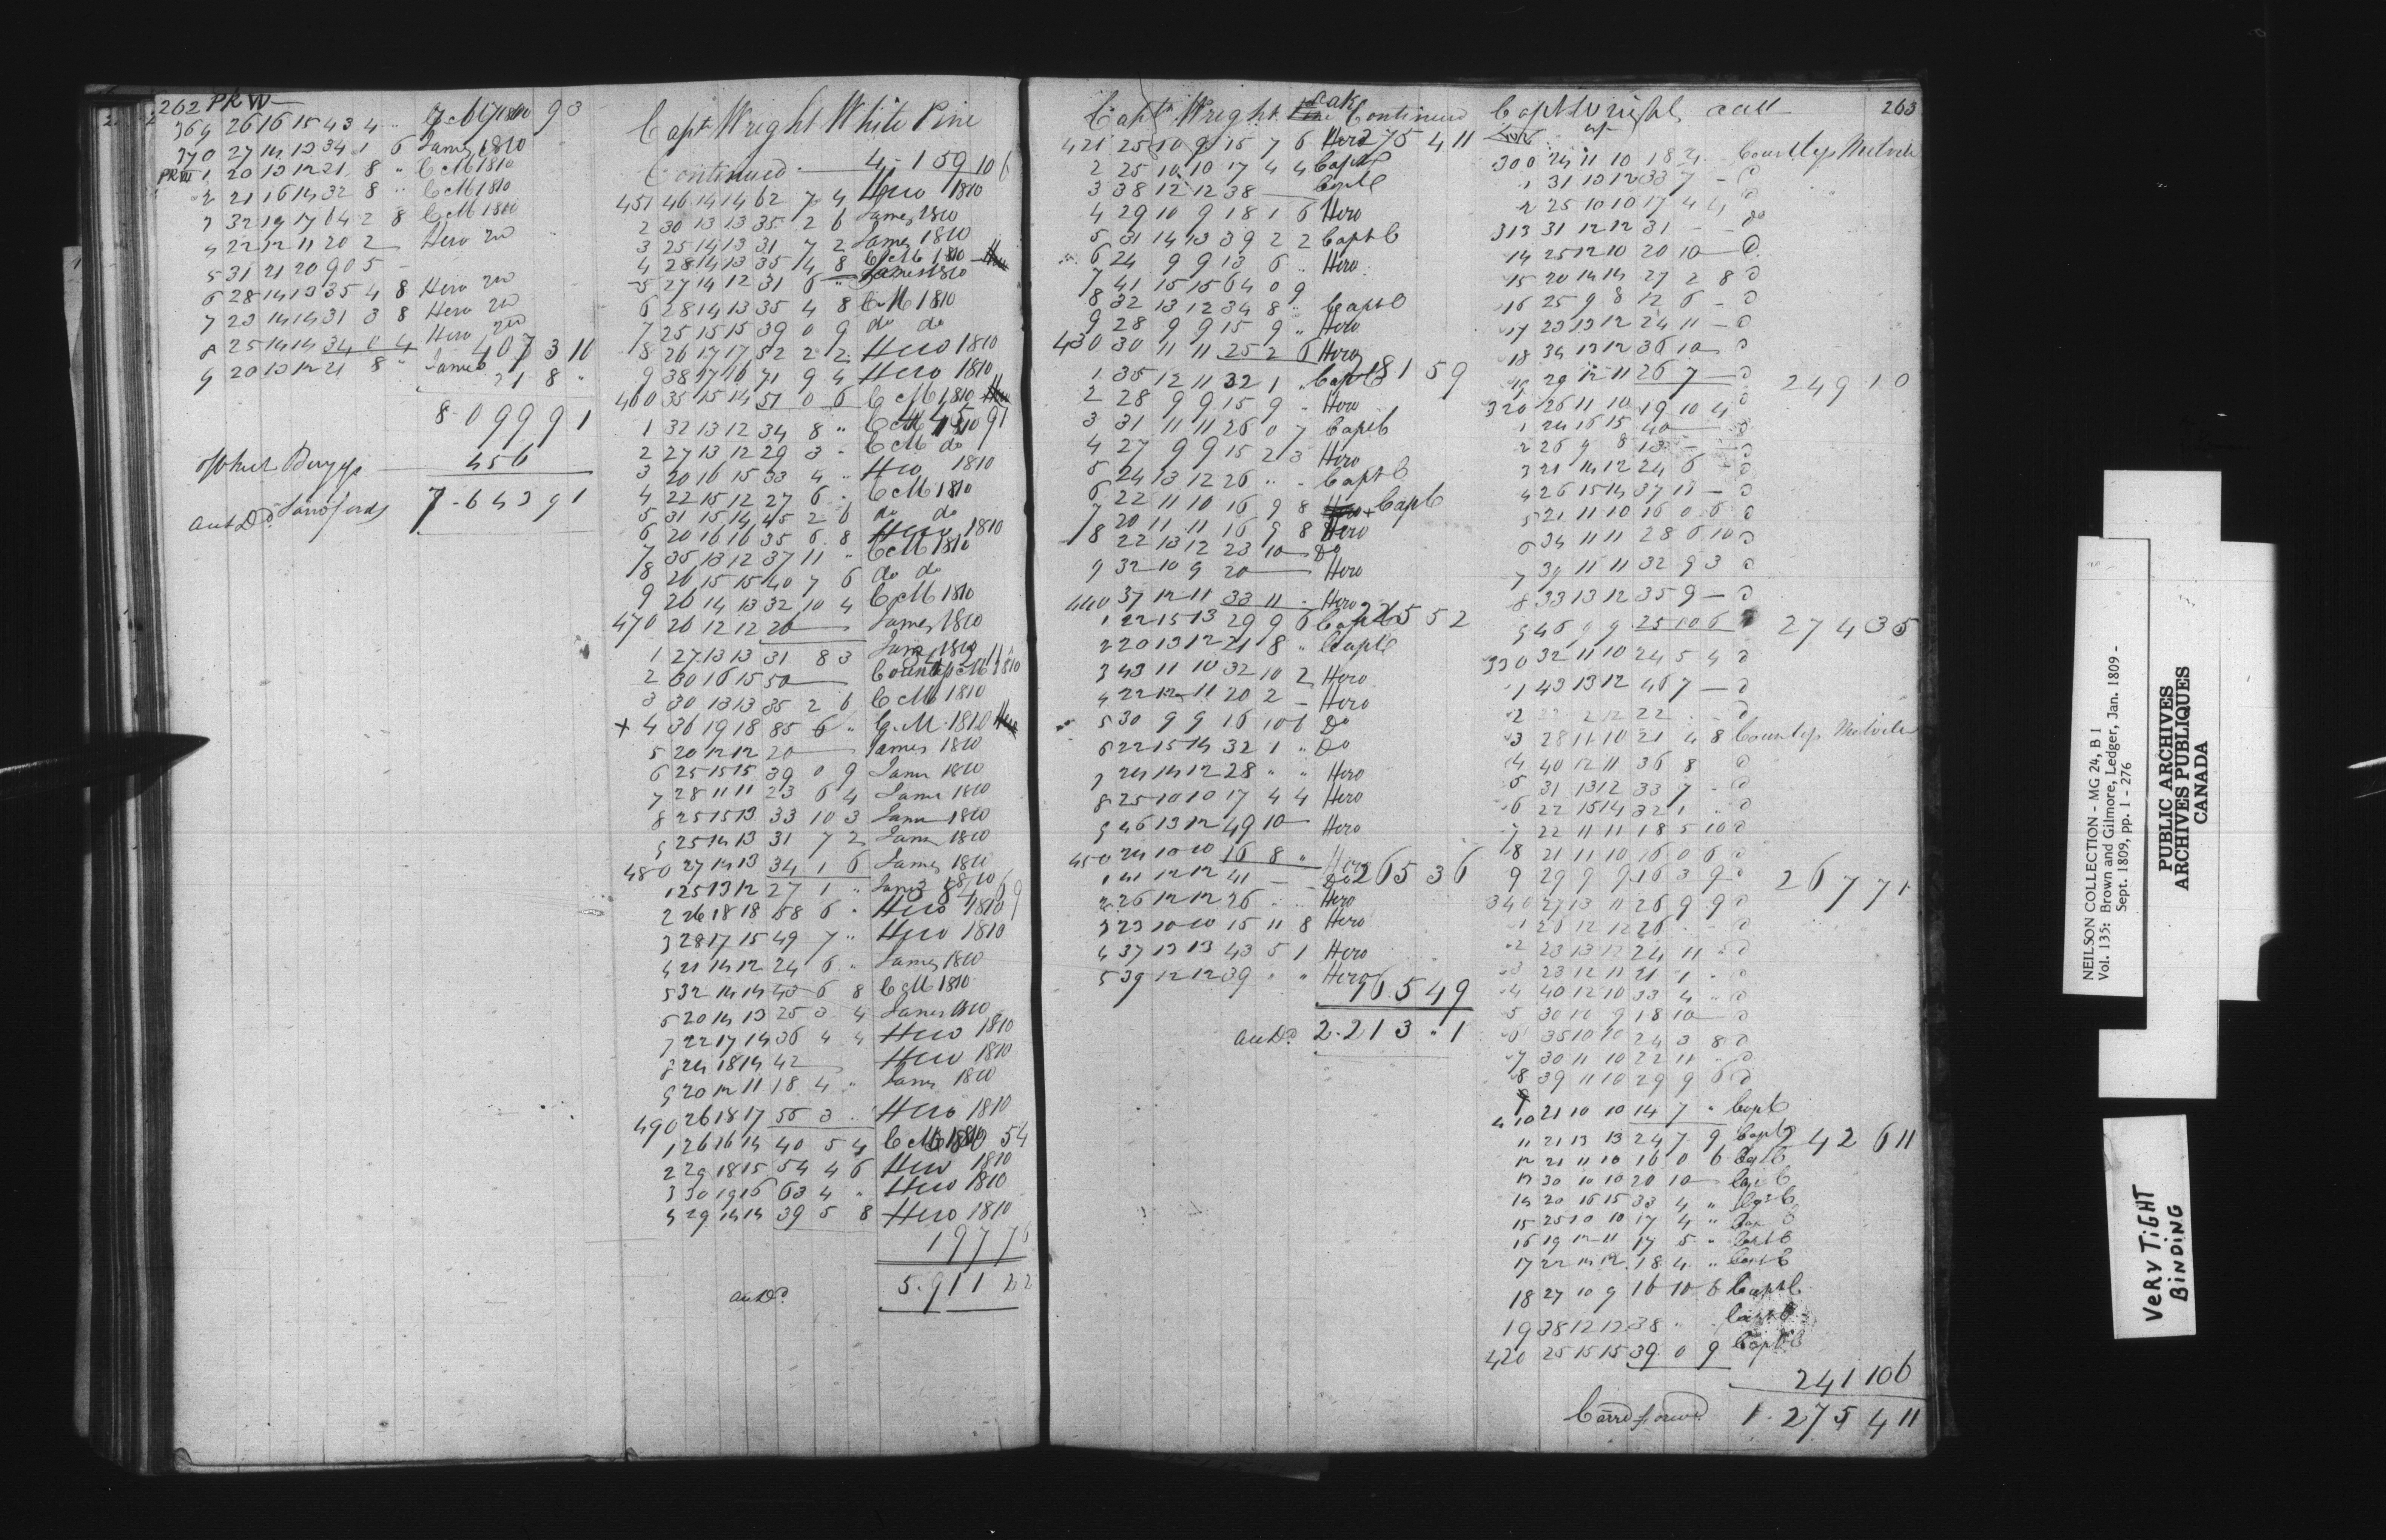 262 PRW
369 26 16 15 43 4 " C M 1810 9 3
370 27 14 13 34 1 6 James 1810
PRW 1 20 13 12 21 8 " C M 1810
2 21 16 14 32 8 " C M 1810
3 32 19 17 64 2 8 C M 1810
4 22 12 11 20 2 — Hero
5 31 21 20 90 5 —
6 28 14 13 35 4 8 Hero
7 23 14 14 31 3 8 Hero
8 25 14 14 34 0 4 Hero
407 3 10
9 20 13 12 21 8 " James
21 8 "
8 . 0 9 9 9 1
456
7 . 6 4 3 9 1
Capt Wright White Pine
Continued — 4 . 1 59 10 6
451 46 14 14 62 7 4 Hero 1810
2 30 13 13 35 2 6 James 1810
3 25 14 13 31 7 2 James 1810
4 28 14 13 35 4 8 C M 1810
5 27 14 12 31 6 " James 1810
6 28 14 13 35 4 8 C M 1810
7 25 15 15 39 0 9 do do
8 26 17 17 52 2 2 Hero 1810
9 38 17 16 71 9 4 Hero 1810
460 35 15 14 51 0 6 C M 1810
445 9 1
1 32 13 12 34 8 " C M 1810
2 27 13 12 29 3 - C M do
3 20 16 15 33 4 " Hero 1810
4 22 15 12 27 6 " C M 1810
5 31 15 14 45 2 6 do do
6 20 16 16 35 6 8 Hero 1810
7 35 13 12 37 11 " C M 1810
8 26 15 15 40 7 6 do do
9 26 14 13 32 10 4 C M 1810
470 20 12 12 20 — James 1810
1 27 13 13 31 8 3 James 1810
2 30 16 15 50 — Countess M 1810
3 30 13 13 35 2 6 C M 1810
+ 4 36 19 18 85 6 " C. M. 1810
5 20 12 12 20 — James 1810
6 25 15 15 39 0 9 James 1810
7 28 11 11 23 6 4 James 1810
8 25 15 13 33 10 3 James 1810
9 25 14 13 31 7 2 James 1810
480 27 14 13 34 1 6 James 1810
1 25 13 12 27 1 " James 1810
2 26 18 18 58 6 " Hero 1810
3 28 17 15 49 7 " Hero 1810
4 21 14 12 24 6 " James 1810
5 32 14 14 43 6 8 C M 1810
6 20 14 13 25 3 4 James 1810
7 22 17 14 36 4 4 Hero 1810
8 24 18 14 42 — Hero 1810
9 20 12 11 18 4 " James 1810
490 26 18 17 55 3 " Hero 1810
1 26 16 14 40 5 4 C M 1810
2 29 18 15 54 4 6 Hero 1810
3 30 19 16 63 4 " Hero 1810
4 29 14 14 39 5 8 Hero 1810
197 7 6
5 . 9 1 1 2 2
Capt Wright Oak Continued
275 4 11
421 25 10 9 15 7 6 Hero
2 25 10 10 17 4 4 Capt C
3 38 12 12 38 — Capt C
4 29 10 9 18 1 6 Hero
5 31 14 13 39 2 2 Capt C
6 24 9 9 13 6 " Hero
7 41 15 15 64 0 9
8 32 13 12 34 8 " Capt C
9 28 9 9 15 9 " Hero
430 30 11 11 25 2 6 Hero
281 5 9
1 35 12 11 32 1 " Capt C
2 28 9 9 15 9 " Hero
3 31 11 11 26 0 7 Capt C
4 27 9 9 15 2 3 Hero
5 24 13 12 26 " " Capt C
6 22 11 10 16 9 8 Capt C
7 20 11 11 16 9 8 Hero
8 22 13 12 23 10 — Do
9 32 10 9 20 — Hero
440 37 12 11 33 11 - Hero
226 5 5 2
1 22 15 13 29 9 6 Capt C
2 20 13 12 21 8 " Capt C
3 43 11 10 32 10 2 Hero
4 22 12 11 20 2 — Hero
5 30 9 9 16 10 6 Do
6 22 15 14 32 1 " Do
7 24 14 12 28 " " Hero
8 25 10 10 17 4 4 Hero
9 46 13 12 49 10 — Hero
450 24 10 10 16 8 " Hero
265 3 6
1 41 12 12 41 — Do
2 26 12 12 26 " " Hero
3 23 10 10 15 11 8 Hero
4 37 13 13 43 5 1 Hero
5 39 12 12 39 " " Hero
165 4 9
2 . 213 . 1
Capt Wright 263
300 24 11 10 18 4 - Countess Melville
1 31 13 12 33 7 - D
2 25 10 10 17 4 4 D
313 31 12 12 31 - - Do
14 25 12 10 20 10 — D
15 20 14 14 27 2 8 D
16 25 9 8 12 6 - D
17 23 13 12 24 11 - D
18 34 13 12 36 10 D
19 29 12 11 26 7 — D
249 1 0
320 26 11 10 19 10 4 D
1 24 16 15 40 — D
2 26 9 8 13 - - D
3 21 14 12 24 6 - D
4 26 15 14 37 11 - D
5 21 11 10 16 0 6 D
6 34 11 11 28 6 10 D
7 39 11 11 32 9 3 D
8 33 13 12 35 9 - D
9 46 9 9 25 10 6 D
274 3 5
330 32 11 10 24 5 4 D
1 43 13 12 46 7 — D
3 28 11 10 21 4 8 Countess Melville
4 40 12 11 36 8 D
5 31 13 12 33 7 - D
6 22 15 14 32 1 " D
7 22 11 11 18 5 10 D
8 21 11 10 16 0 6 D
9 29 9 9 16 3 9 D
267 7 1
340 27 13 11 26 9 9 D
1 26 12 12 26 - - D
2 23 13 12 24 11 " D
3 23 12 11 21 1 " D
4 40 12 10 33 4 " D
5 30 10 9 18 10 — D
6 35 10 10 24 3 8 D
7 30 11 10 22 11 " D
8 39 11 10 29 9 6 D
410 21 10 10 14 7 " Capt C
242 6 11
11 21 13 13 24 7 9 Capt C
12 21 11 10 16 0 6 Capt C
13 30 10 10 20 10 — Capt C
14 20 16 15 33 4 " Capt C
15 25 10 10 17 4 " Capt C
16 19 12 11 17 5 " Capt C
17 22 14 12 18 4 " Capt C
18 27 10 9 16 10 6 Capt C
19 38 12 12 38 " " Capt C
420 25 15 15 39 0 9 Capt C
241 10 6
Carrd forward 1 . 275 4 11
NEILSON COLLECTION - MG 24, B 1
Vol. 135: Brown and Gilmore, Ledger, Jan. 1809 -
Sept. 1809, pp. 1 - 276
PUBLIC ARCHIVES
ARCHIVES PUBLIQUES
CANADA
VERY TIGHT
BINDING